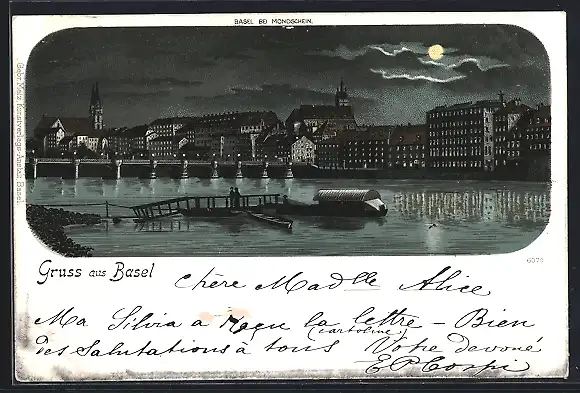 BASEL BEI MONDSCHEIN.
Gebr. Metz, Kunstverlags-Anstalt, Basel.
6070
Gruss aus Basel
Chère Madlle Alice
Ma Silvia a reçu la lettre – Bien
(cartoline)
des salutations à tous Votre devoué